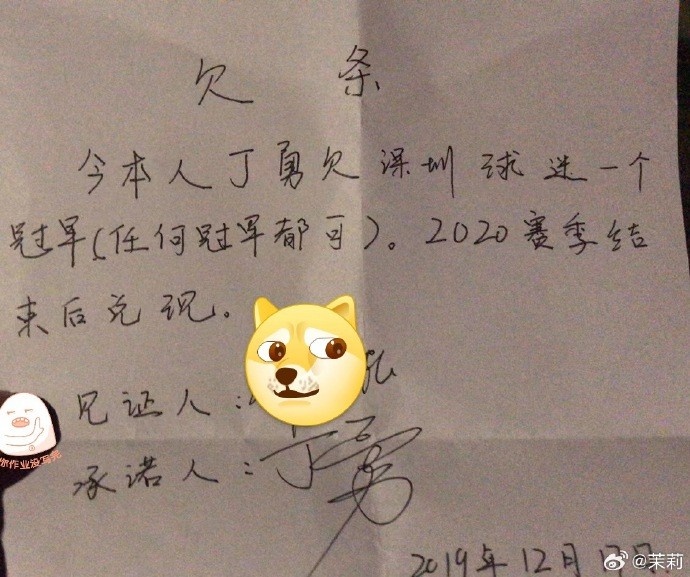 欠条
今本人丁勇欠深圳球迷一个
冠军(任何冠军都可)。2020赛季结
束后兑现。
见证人:
承诺人:丁勇
你作业没写完
2019年12月17日
@茉莉